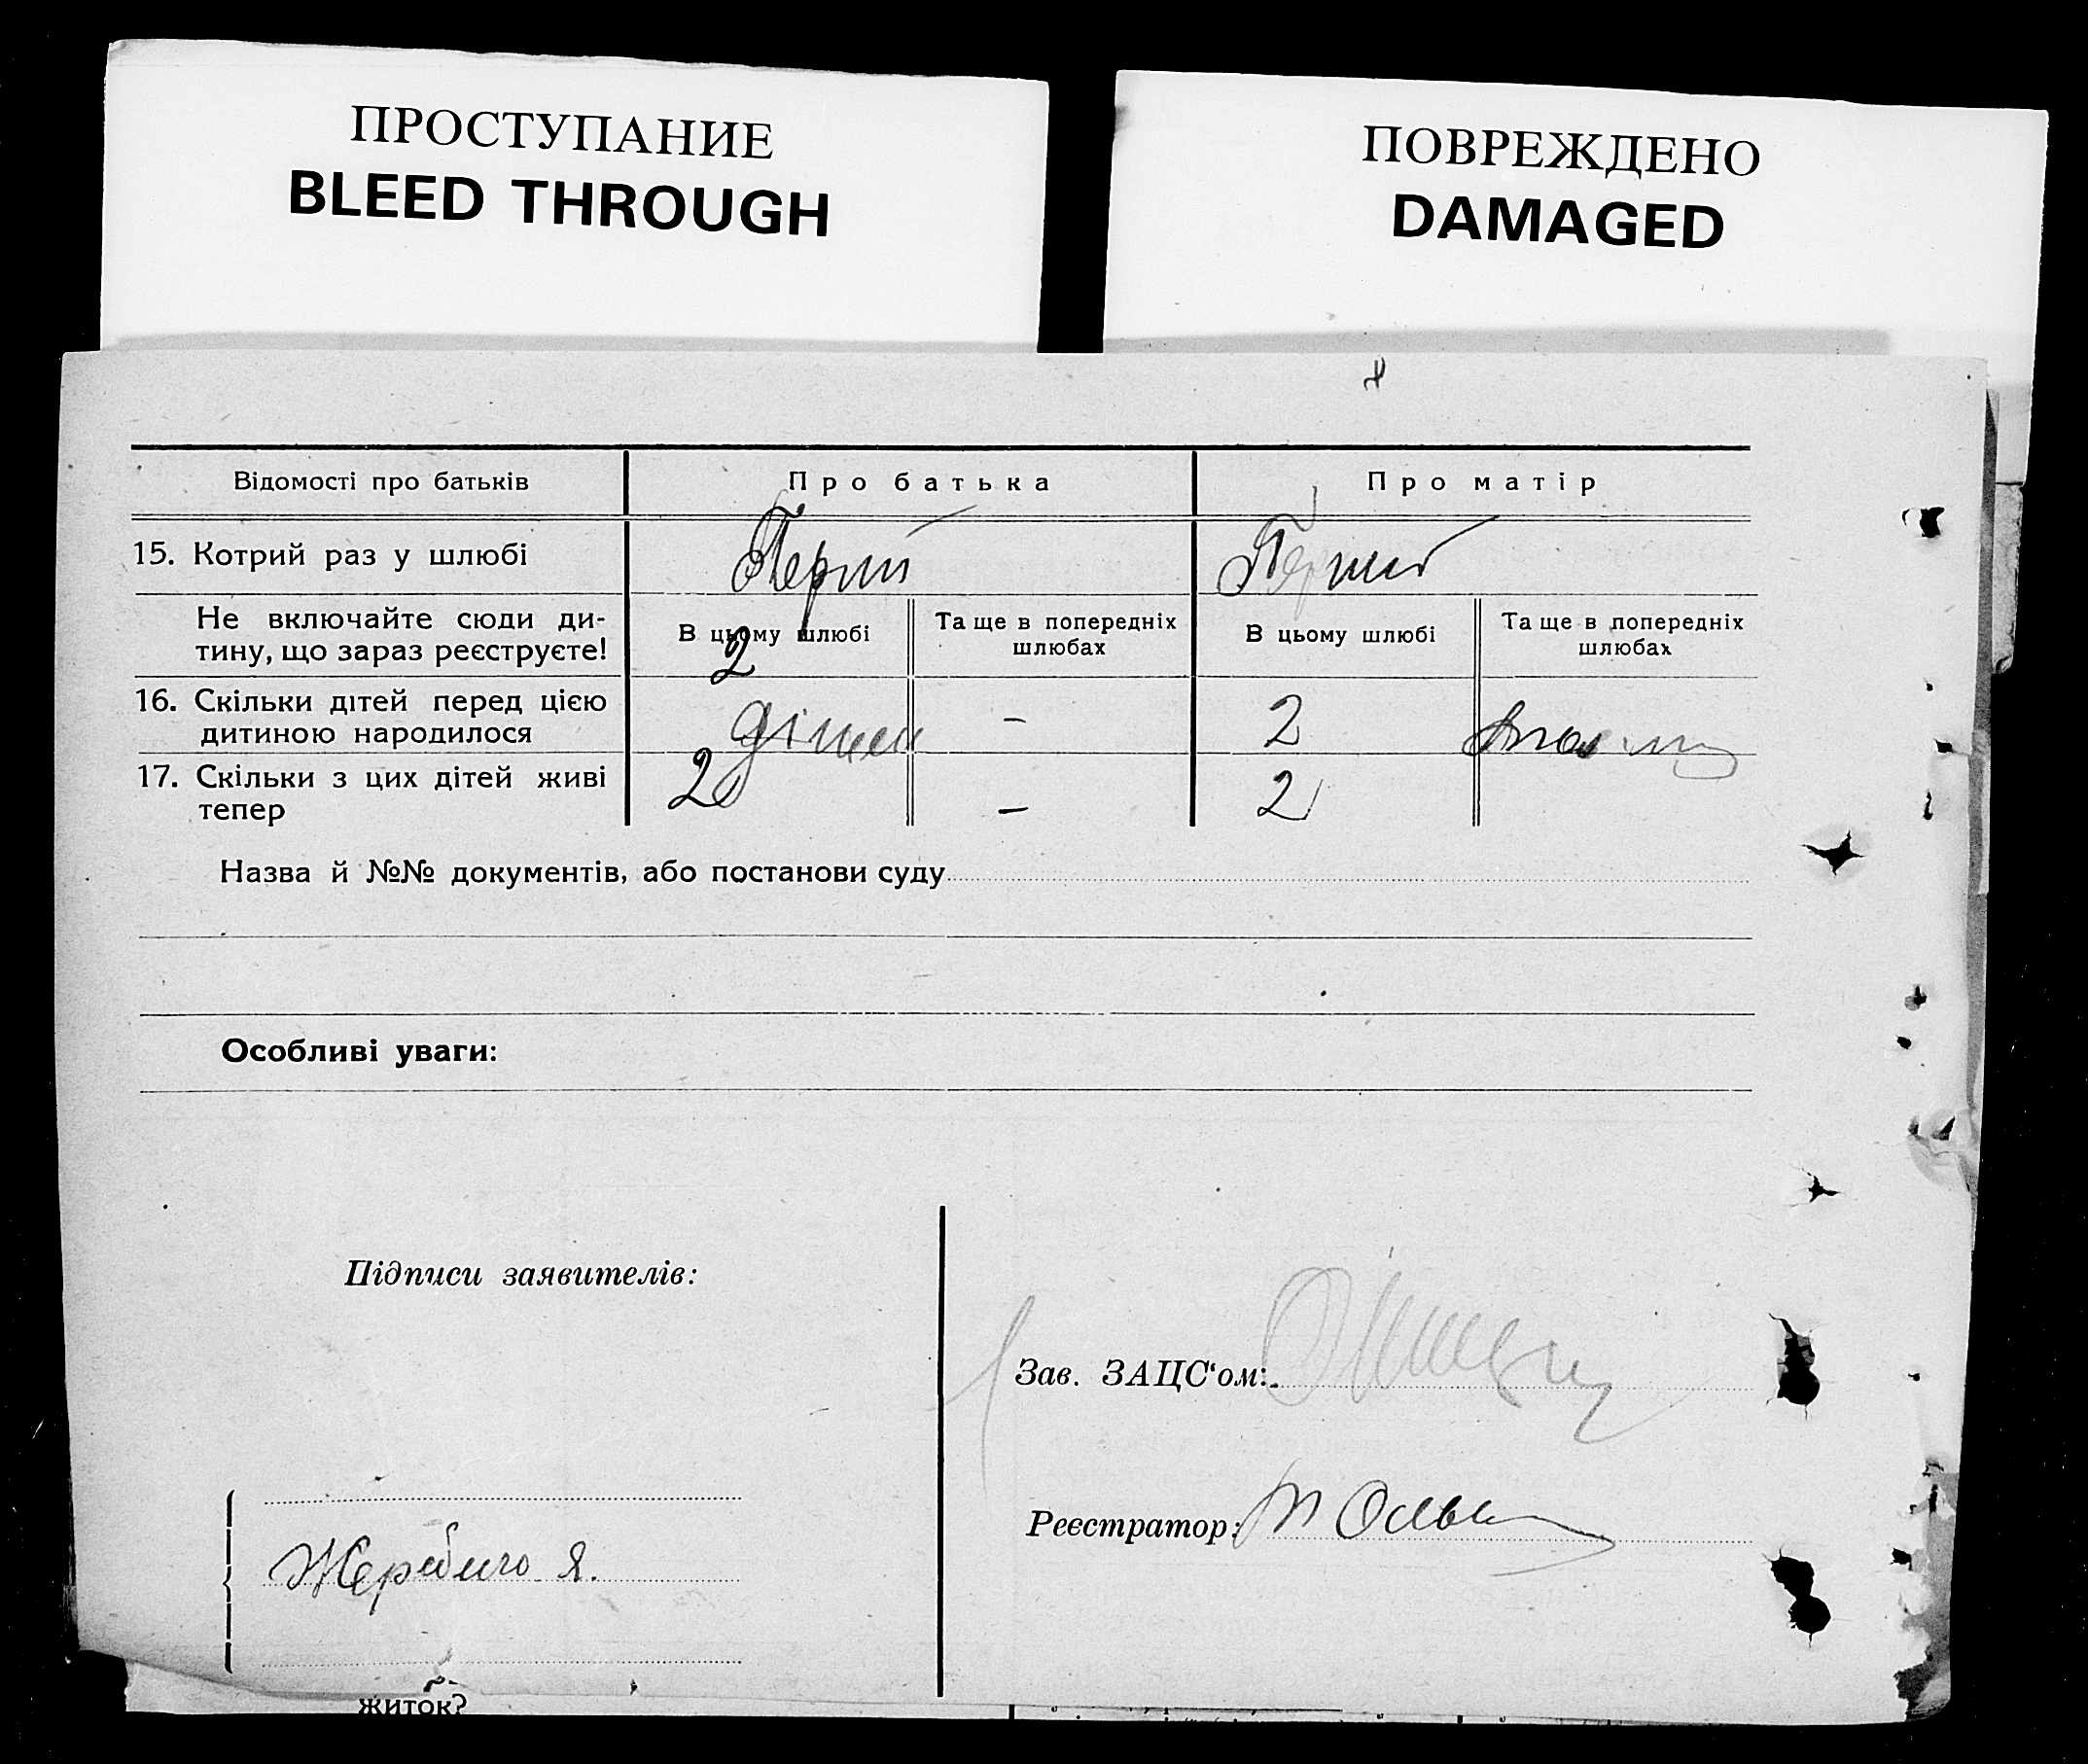 ПРОСТУПАНИЕ
BLEED THROUGH
ПОВРЕЖДЕНО
DAMAGED
Відомості про батьків
Про батька
Про матір
15. Котрий раз у шлюбі
Перши
Перший
Не включайте сюди ди-
тину, що зараз реєструєте!
В цьому шлюбі
Та ще в попередніх
шлюбах
В цьому шлюбі
Та ще в попередніх
шлюбах
2
16. Скільки дітей перед цією
дитиною народилося
дітей
–
2
17. Скільки з цих дітей живі
тепер
2
–
2
Назва й №№ документів, або постанови суду
Особливі уваги:
Підписи заявителів:
Зав. ЗАЦС'ом:
Реєстратор:
Я.
житок?